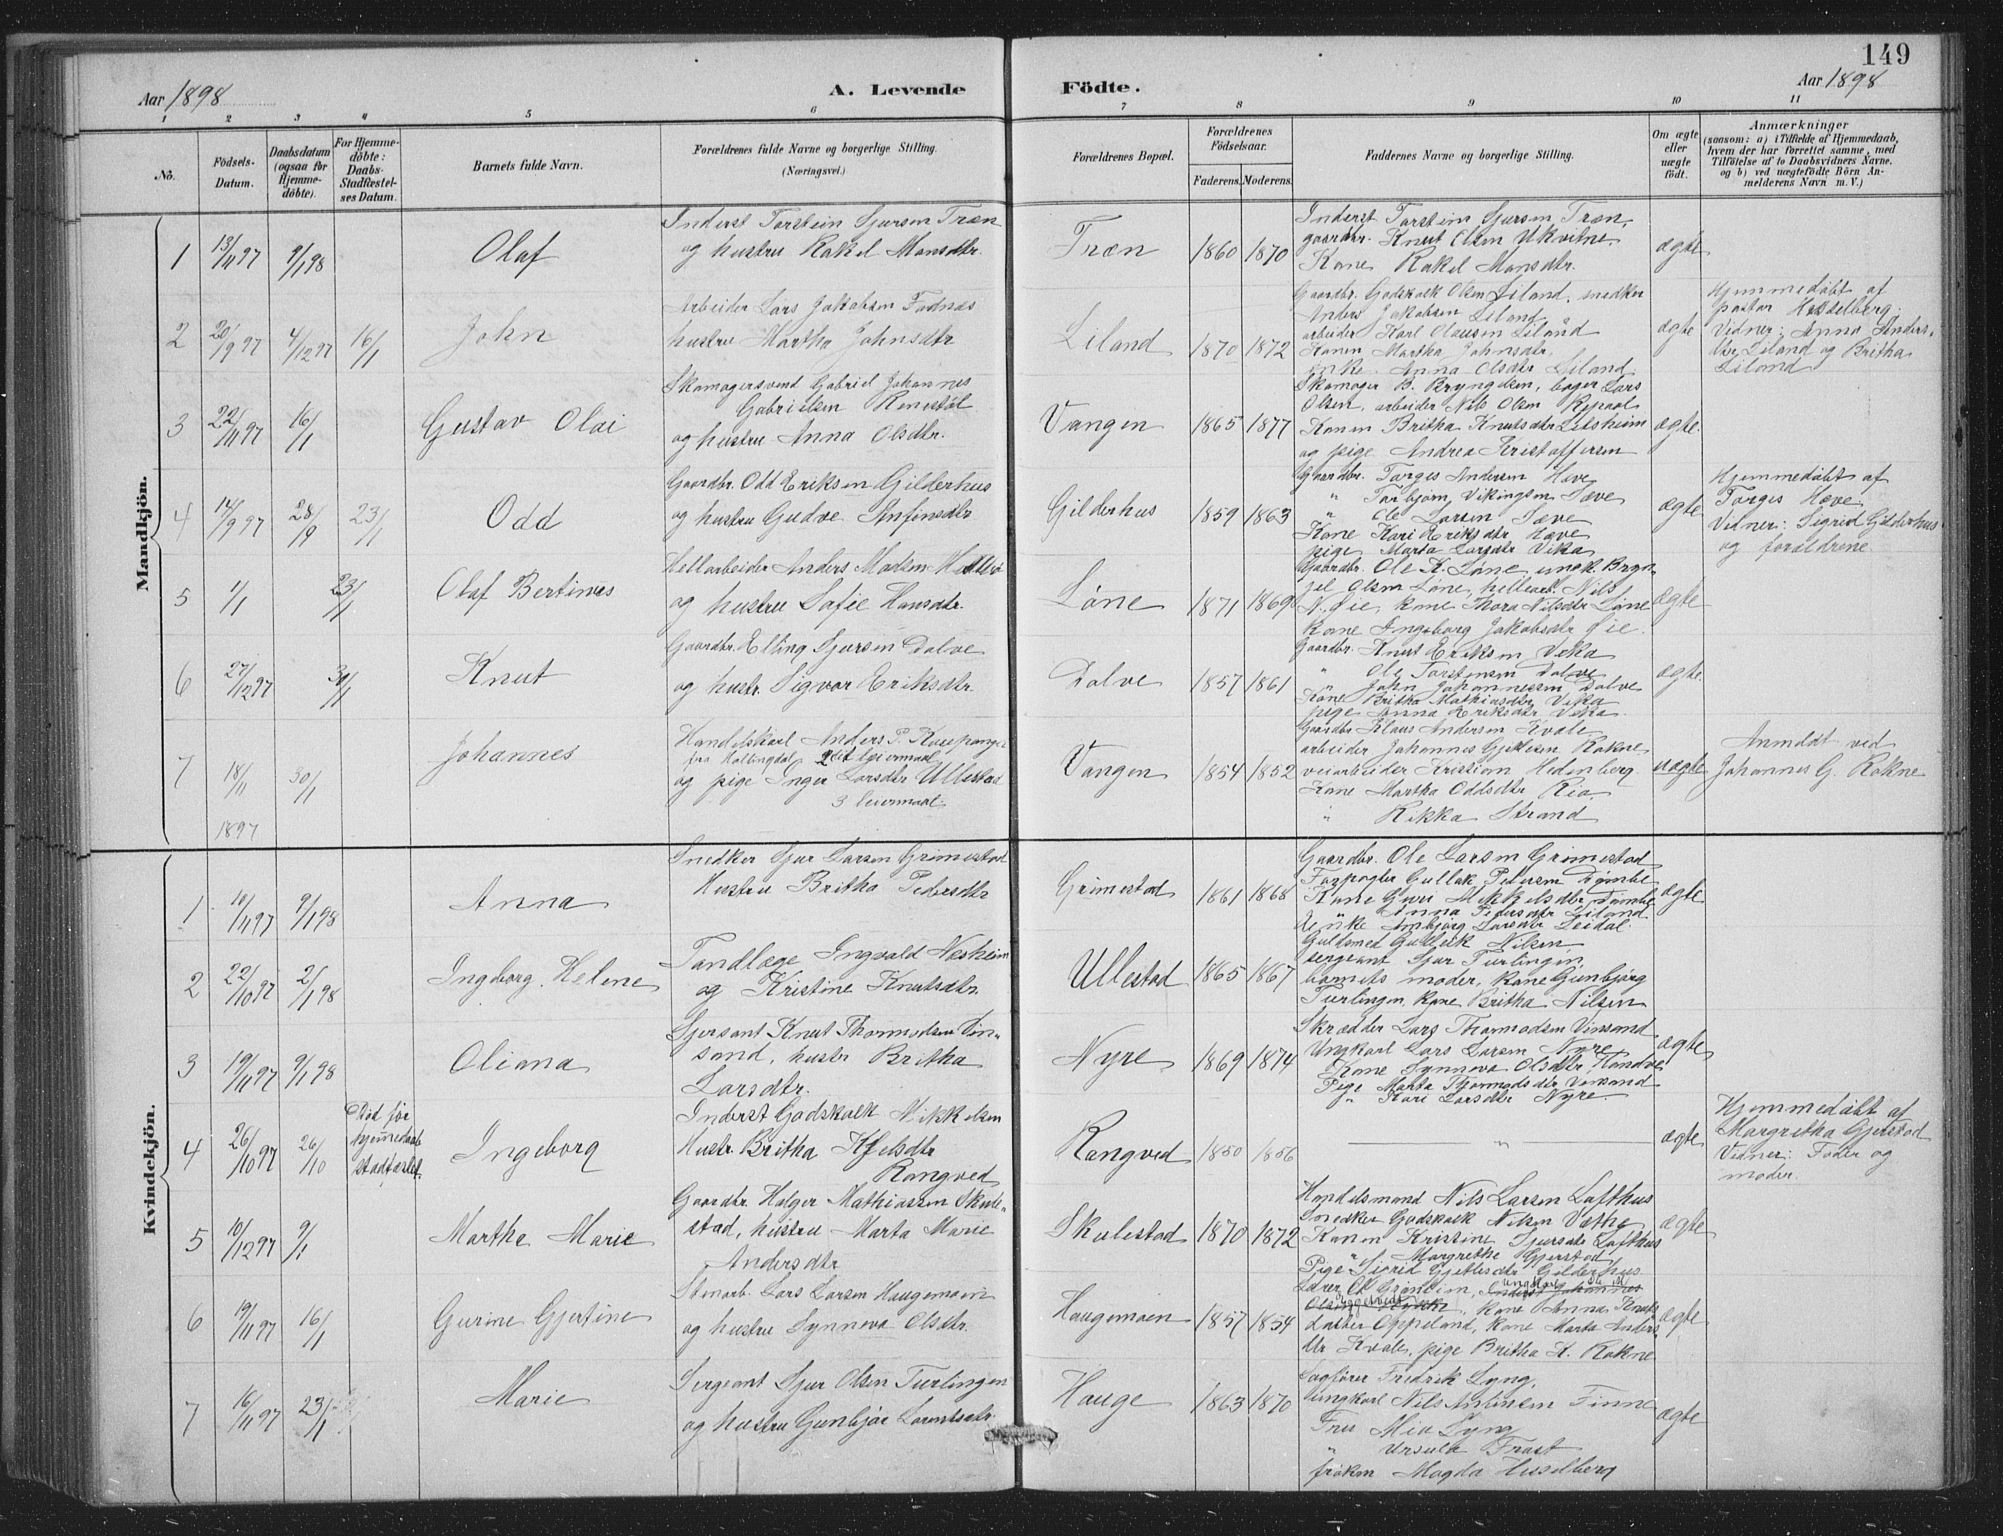 149
Aar 1898
A. Levende Födte.
Aar 1898
1 2 3 4 5 6 7 8 9 10 11
No.
Födsels-Datum.
Daabsdatum (ogsaa for Hjemmedöbte).
For Hjemmedöbte: Daabs-Stadfæstelses Datum.
Barnets fulde Navn.
Forældrenes fulde Navne og borgerlige Stilling.
(Næringsvei.)
Forældrenes Bopæl.
Forældrenes Födselsaar.
Faderens. Moderens.
Faddernes Navne og borgerlige Stilling.
Om ægte eller uægte födt.
Anmærkninger
(saasom: a) i Tilfælde af Hjemmedaab, hvem der har forrettet samme, med Tilföielse af to Daabsvidners Navne. og b) ved uægtefödte Börn Anmelderens Navn m. V.)
Mandkjön.
1 13/11 97 9/1 98 Olaf
Inderst Torstein Sjursen Træn
og hustru Rakel Monsdtr.
Træn 1860 1870
Inderst Torstein Sjursen Træn,
gaardbr. Knut Olsen Ukvitne
Kone Rakel Monsdtr.
ægte
2 20/9 97 4/12 97 16/1 John
Arbeider Lars Jakobsen Fodnæs
hustru Martha Johnsdtr
Liland 1870 1872
Gaardbr. Godskalk Olsen Liland, snedker
Anders Jakobsen Liland
arbeider Karl Olausen Liland
Konen Martha Johnsdtr.
enke Anna Olsdtr Liland
ægte
Hjemmedøbt af
pastor Hesselberg;
Vidner: Anna Anders-
dtr Liland og Britha
Liland
3 22/11 97 16/1 Gustav Olai
Skomagersvend Gabriel Johannes
Gabrielsen
og hustru Anna Olsdtr.
Vangen 1865 1877
Skomager B. Bryngelsen, bager Lars
Olsen, arbeider Nils Olsen Repaal
Konen Britha Knutsdtr
og pige Andrea Kristoffersen
ægte
4 14/9 97 28/9 23/1 Odd
Gaardbr. Odd Eriksen Gilderhus
og hustru Gudve Anfinsdtr
Gilderhus 1859 1863
Gaardbr. Torgis Andersen Hæve
" Torbjørn Vikingsen Tæve
" Ole Larsen Tæve
Kone Kari Eriksdtr Hæve
pige Marta Larsdtr Vika
ægte
Hjemmedøbt af
Torgis Hæve;
Vidner: Sigrid Gilderhus
og forældrene
5 1/1 23/1 Olaf Bertinus
Hellarbeider Anders Madsen
og hustru Sofie Hansdtr.
Løne 1871 1869
Gaardbr. Ole K. Løne, ungk. Bryn-
gel Olsen Løne, hellearb. Nils
N. Øie, kone Thora Nilsdtr Løne
Kone Ingeborg Jakobsdtr Øie.
ægte
6 27/12 97 30/1 Knut
Gaardbr. Elling Sjursen Dolve
og hustr. Sigvor Eriksdtr.
Dolve 1857 1861
Gaardbr. Knut Eriksen Vika
" Ole Torstensen Dolve
" John Johannesen Dolve
Kone Britha Mathiasdtr Vika
pige Anna Eriksdtr Vika
ægte
7 18/11 1897 30/1 Johannes
Handelskarl Anders P. Kaupanger
fra Hallingdal 2det leiermaal
og pige Inger Larsdtr Ullestad
3 leiermaal.
Vangen 1854 1852
Gaardbr Klaus Andersen Kvale
arbeider Johannes Gjettlesen Rokne
veiarbeider Kristian Hedenberg.
Kone Martha Oddsdtr
" Rikka Strand
uægte
Anmeldt ved
Johannes G. Rokne
Kvindekjön.
1 10/11 97 9/1 98 Anna
Snedker Sjur Larsen Grimestad
Hustru Britha Pedersdtr
Grimestad 1861 1868
Gaardbr. Ole Larsen Grimestad
Forpagter Gullak Pedersen Dømbe
Kone Guri Mikkelsdtr Dømbe
" Anna Pedersdtr Liland.
Enke Ambjørg Larsdtr Seidal.
ægte
2 22/10 97 2/1 98 Ingeborg Helene
Tandlæge Ingvald Næsheim
og Kristine Knutsdtr.
Ullestad 1865 1867
Guldsmed Gulleik Nilsen,
sergeant Sjur Turlingen,
barnets moder, kone Gunbjørg
Turlingen, kone Britha Nilsen
3 19/11 97 9/1 98 Oliana
Sjersant Knut Thormodsen Vin-
sand, hustr Britha
Larsdtr.
Nyre 1869 1874
Skrædder Lars Thormodsen Vinsand
Ungkarl Lars Larsen Nyre
Kone Synneva Olsdtr, Handve
Pige Marta Thormodsdtr Vinsand
" Kari Larsdtr Nyre
ægte
4 26/10 97 26/10
Død før
hjemmedaab
stadfæstet.
Ingeborg
Inderst Godskalk Mikkelsen
Hustr. Britha
Rongved
Rongved 1850 1856
"
ægte
Hjemmedøbt af
Margretha Gjerstad
Vidner: Fader og
moder.
5 10/12 97 9/1 Martha Marie
Gaardbr. Holger Mathiassen Skule-
stad, hustru Marta Marie
Andersdtr
Skulestad 1870 1872
Handelsmand Nils Larsen Lofthus
Snedker Godskalk Nilsen Væthe
Konen Kristine Sjursdtr Lofthus
" Margrethe Gjerstad
Pige Sigrid Gjettlesdtr Gilderhus
ægte
6 19/11 97 16/1 Gurine Gjertine
Stenarb. Lars Larsen Haugemoen
og hustru Synneva Olsdtr.
Haugemoen 1857 1854
Inderst Johannes
kone Anna Knuts-
datter Oppeland, kone Marta Anders
dtr Kvale, pige Britha A. Rokne
ægte
7 16/11 97 23/1 Marie
Sergeant Sjur Olsen Turlingen
og hustru Gunbjør Larsdtr.
Hauge 1863 1870
Sagfører Fredrik Lyng,
ungkarl Nils Andersen Finne
Fru Mia Lyng
" Ursula Frost
frøken Magda Hesselberg
ægte